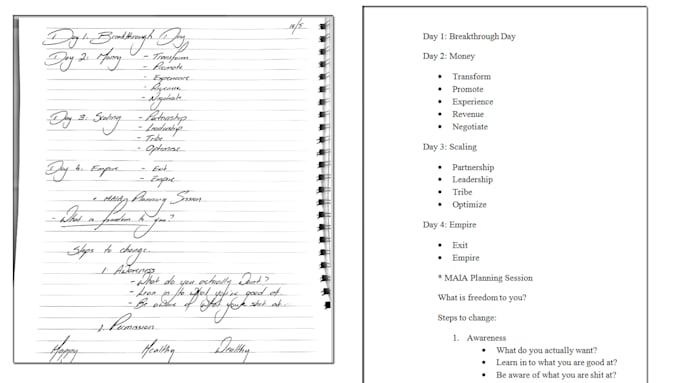 Day 1: Breakthrough Day
Day 2: Money - Transform
- Promote
- Experience
- Revenue
- Negotiate
Day 3: Scaling - Partnership
- Leadership
- Tribe
- Optimise
Day 4: Empire - Exit
- Empire
* MAIA Planning Session
- What is freedom to you?
Steps to change.
1. Awareness
- What do you actually want?
- Lean in to what you're good at.
- Be aware of what you're shit at.
2. Permission
Happy Healthy Wealthy
Day 1: Breakthrough Day
Day 2: Money
• Transform
• Promote
• Experience
• Revenue
• Negotiate
Day 3: Scaling
• Partnership
• Leadership
• Tribe
• Optimize
Day 4: Empire
• Exit
• Empire
* MAIA Planning Session
What is freedom to you?
Steps to change:
1. Awareness
• What do you actually want?
• Learn in to what you are good at?
• Be aware of what you are shit at?